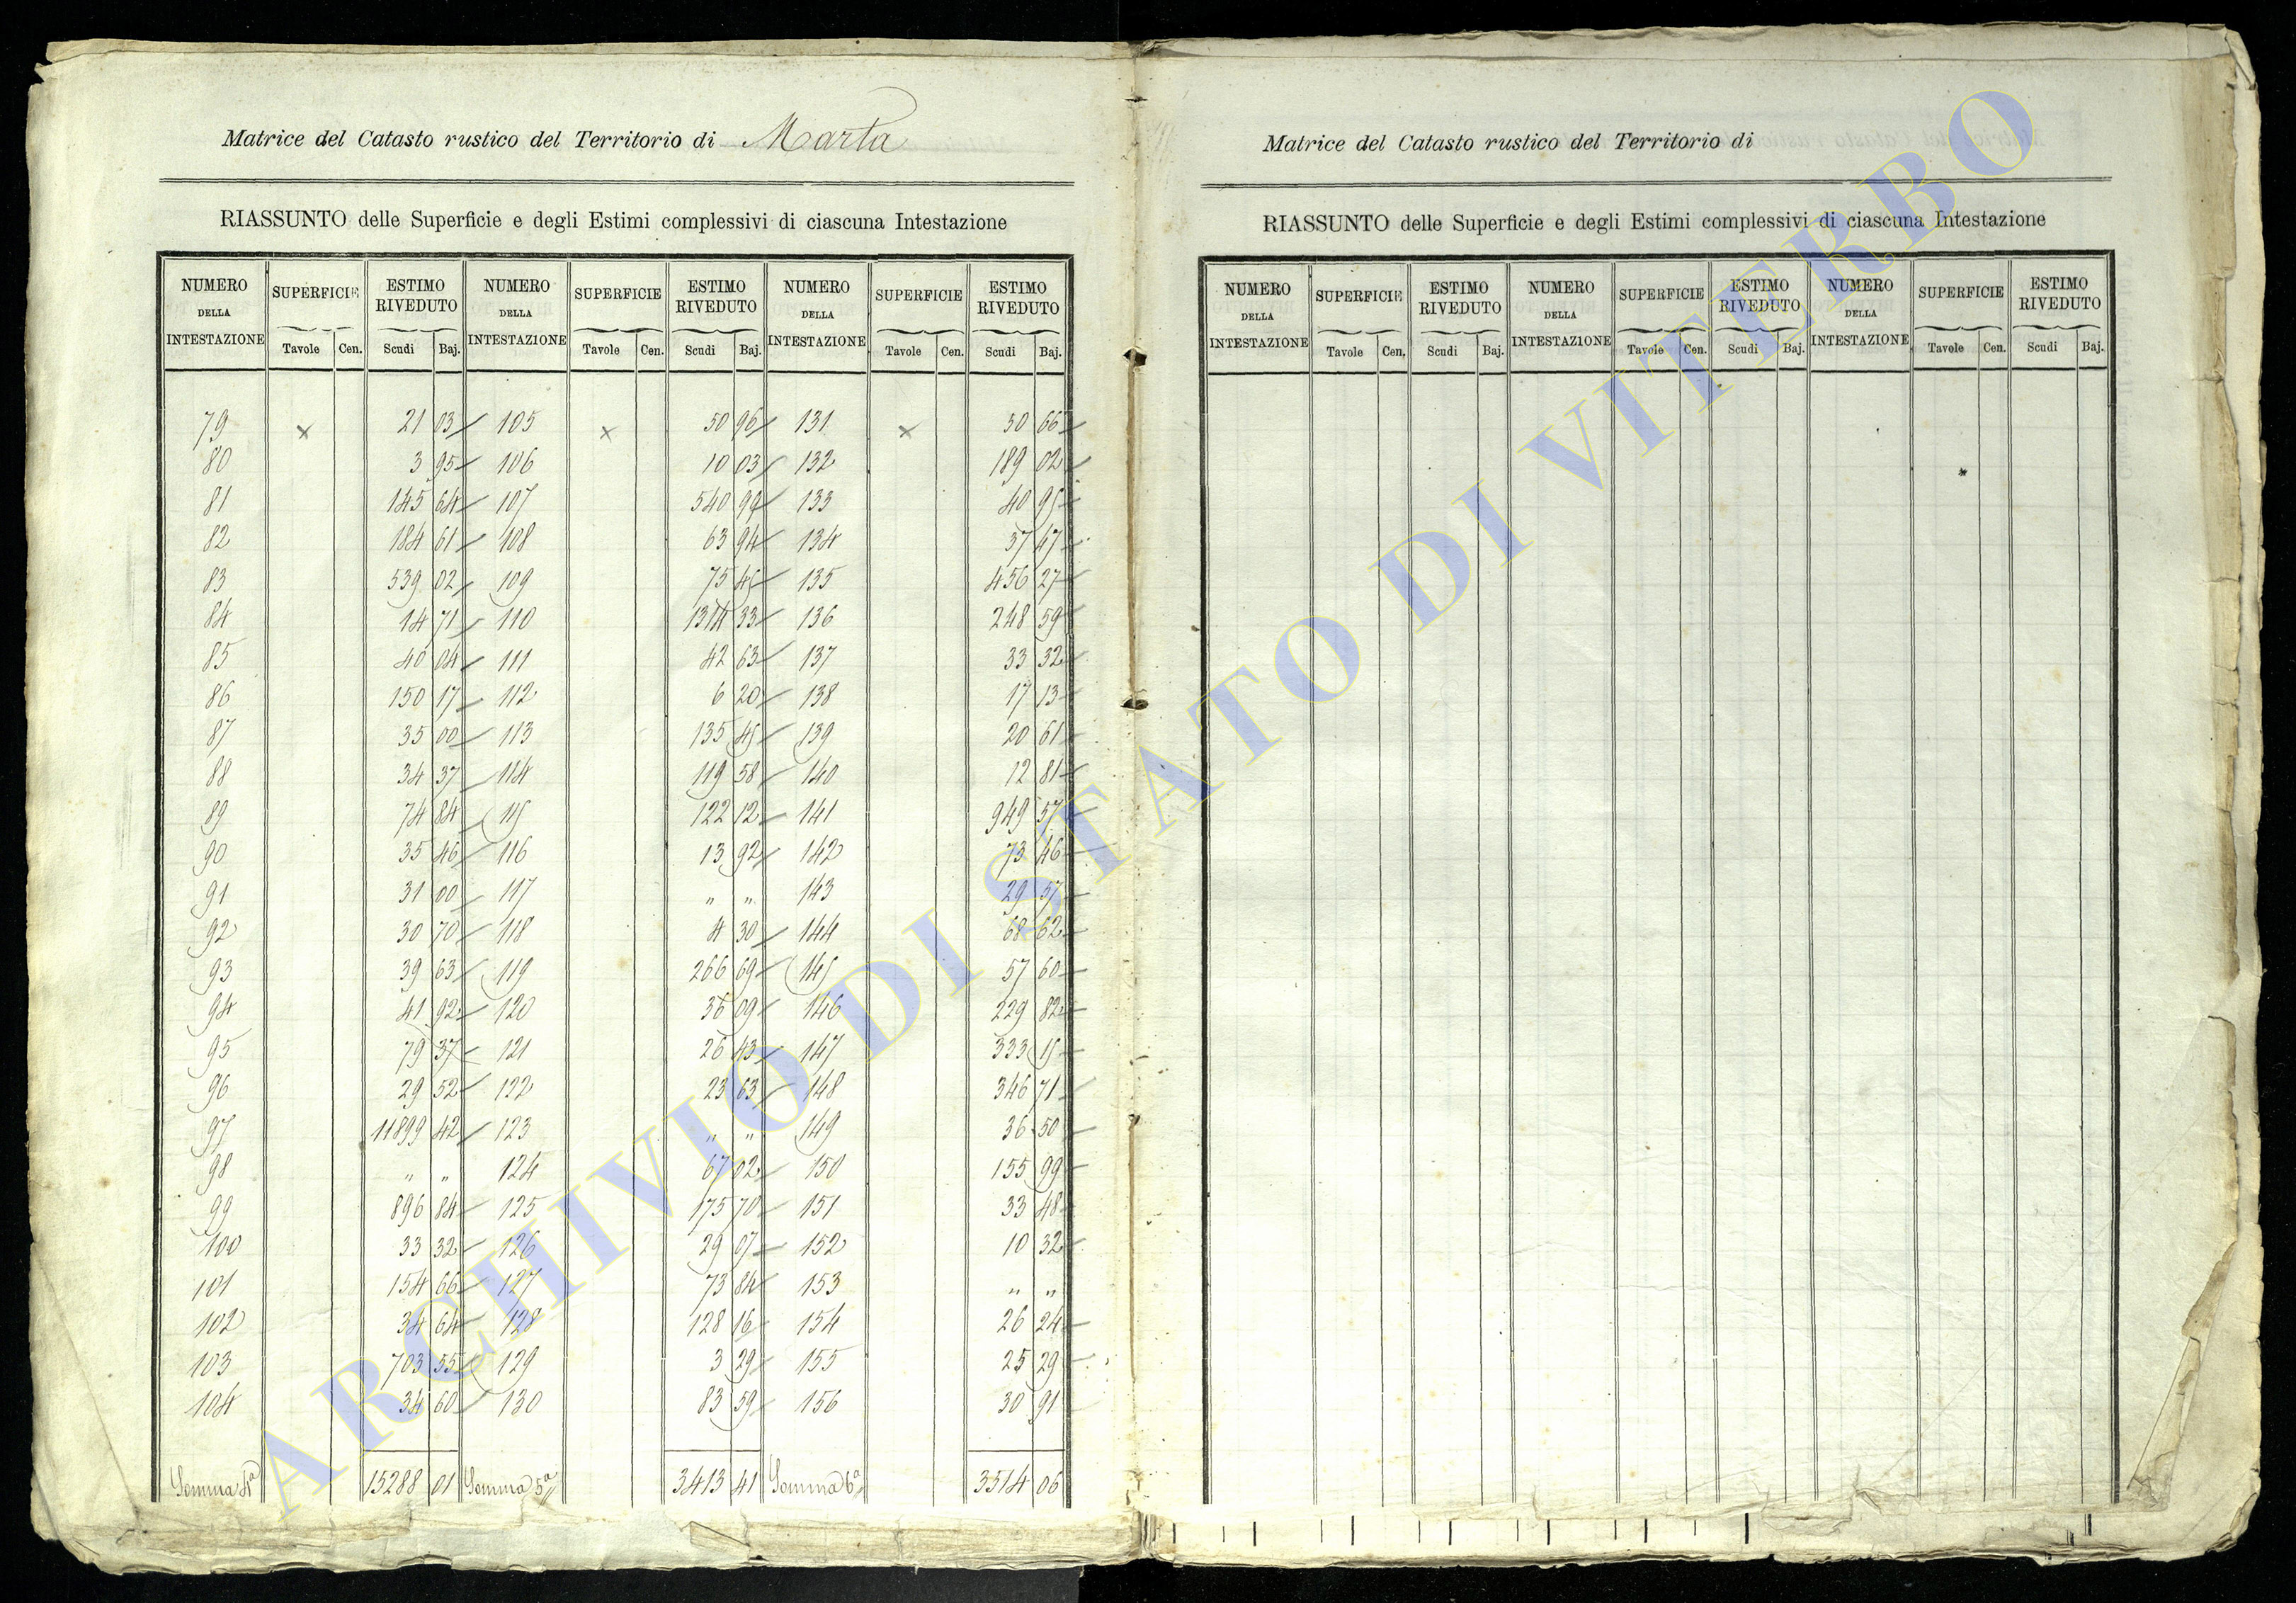 Matrice del Catasto rustico del Territorio di Marta
RIASSUNTO delle Superficie e degli Estimi complessivi di ciascuna Intestazione
NUMERO DELLA INTESTAZIONE SUPERFICIE ESTIMO RIVEDUTO NUMERO DELLA INTESTAZIONE SUPERFICIE ESTIMO RIVEDUTO NUMERO DELLA INTESTAZIONE SUPERFICIE ESTIMO RIVEDUTO
Tavole Cen. Scudi Baj. Tavole Cen. Scudi Baj. Tavole Cen. Scudi Baj.
79 x 21 03 105 x 50 96 131 x 50 66
80 3 95 106 10 03 132 189 02
81 145 64 107 540 99 133 40 95
82 184 61 108 63 94 134 37 47
83 539 02 109 75 45 135 456 27
84 14 71 110 1314 33 136 248 59
85 40 04 111 42 63 137 33 32
86 150 17 112 6 20 138 17 13
87 35 00 113 135 45 139 20 61
88 34 37 114 119 58 140 12 81
89 74 84 115 122 12 141 949 57
90 35 46 116 13 92 142 73 46
91 31 00 117 " " 143 29 57
92 30 70 118 4 30 144 68 62
93 39 63 119 266 69 145 57 60
94 41 92 120 36 09 146 229 82
95 79 37 121 26 43 147 333 15
96 29 52 122 23 63 148 346 71
97 11899 42 123 " " 149 36 50
98 " " 124 67 02 150 155 99
99 896 84 125 175 70 151 33 48
100 33 32 126 29 07 152 10 32
101 154 66 127 73 84 153 " "
102 34 64 128 128 16 154 26 24
103 703 55 129 3 29 155 25 29
104 34 60 130 83 59 156 30 91
Somma 4ª 15288 01 Somma 5ª 3413 41 Somma 6ª 3514 06
Matrice del Catasto rustico del Territorio di
RIASSUNTO delle Superficie e degli Estimi complessivi di ciascuna Intestazione
NUMERO DELLA INTESTAZIONE SUPERFICIE ESTIMO RIVEDUTO NUMERO DELLA INTESTAZIONE SUPERFICIE ESTIMO RIVEDUTO NUMERO DELLA INTESTAZIONE SUPERFICIE ESTIMO RIVEDUTO
Tavole Cen. Scudi Baj. Tavole Cen. Scudi Baj. Tavole Cen. Scudi Baj.
ARCHIVIO DI STATO DI VITERBO